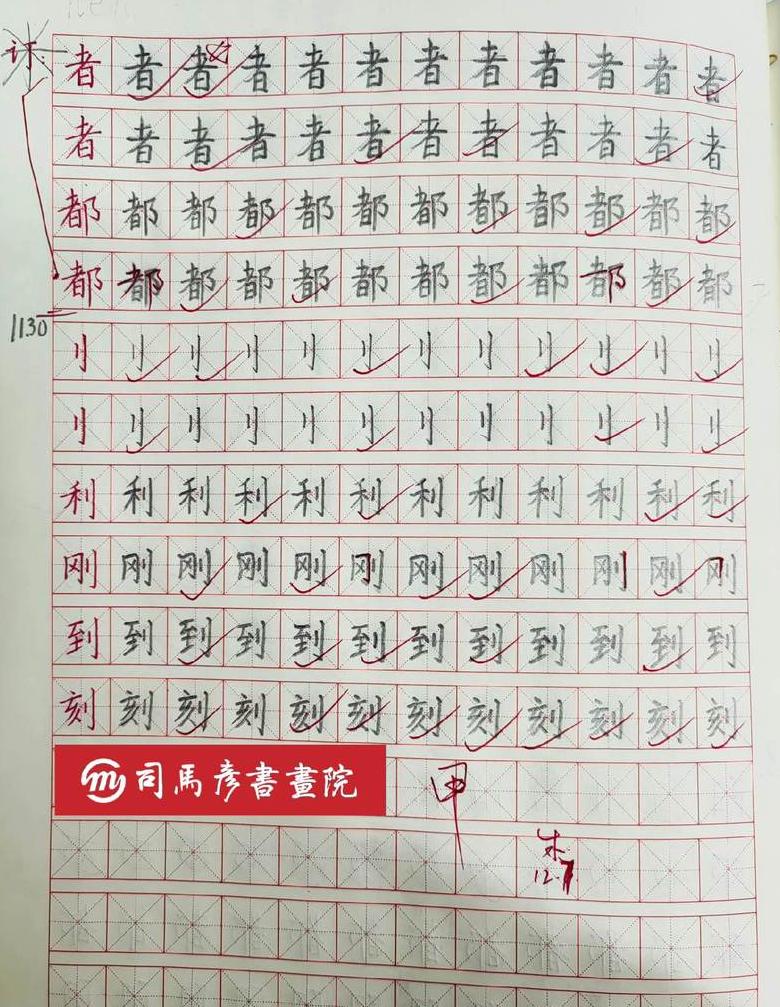 订
者者者者者者者者者者者者
者者者者者者者者者者者者
都都都都都都都都都都都都
都都都都都都都都都都都都
1130
刂刂刂刂刂刂刂刂刂刂刂刂
刂刂刂刂刂刂刂刂刂刂刂刂
利利利利利利利利利利利利
刚刚刚刚刚刚刚刚刚刚刚刚
到到到到到到到到到到到到
刻刻刻刻刻刻刻刻刻刻刻刻
司馬彦書畫院
甲
12.7